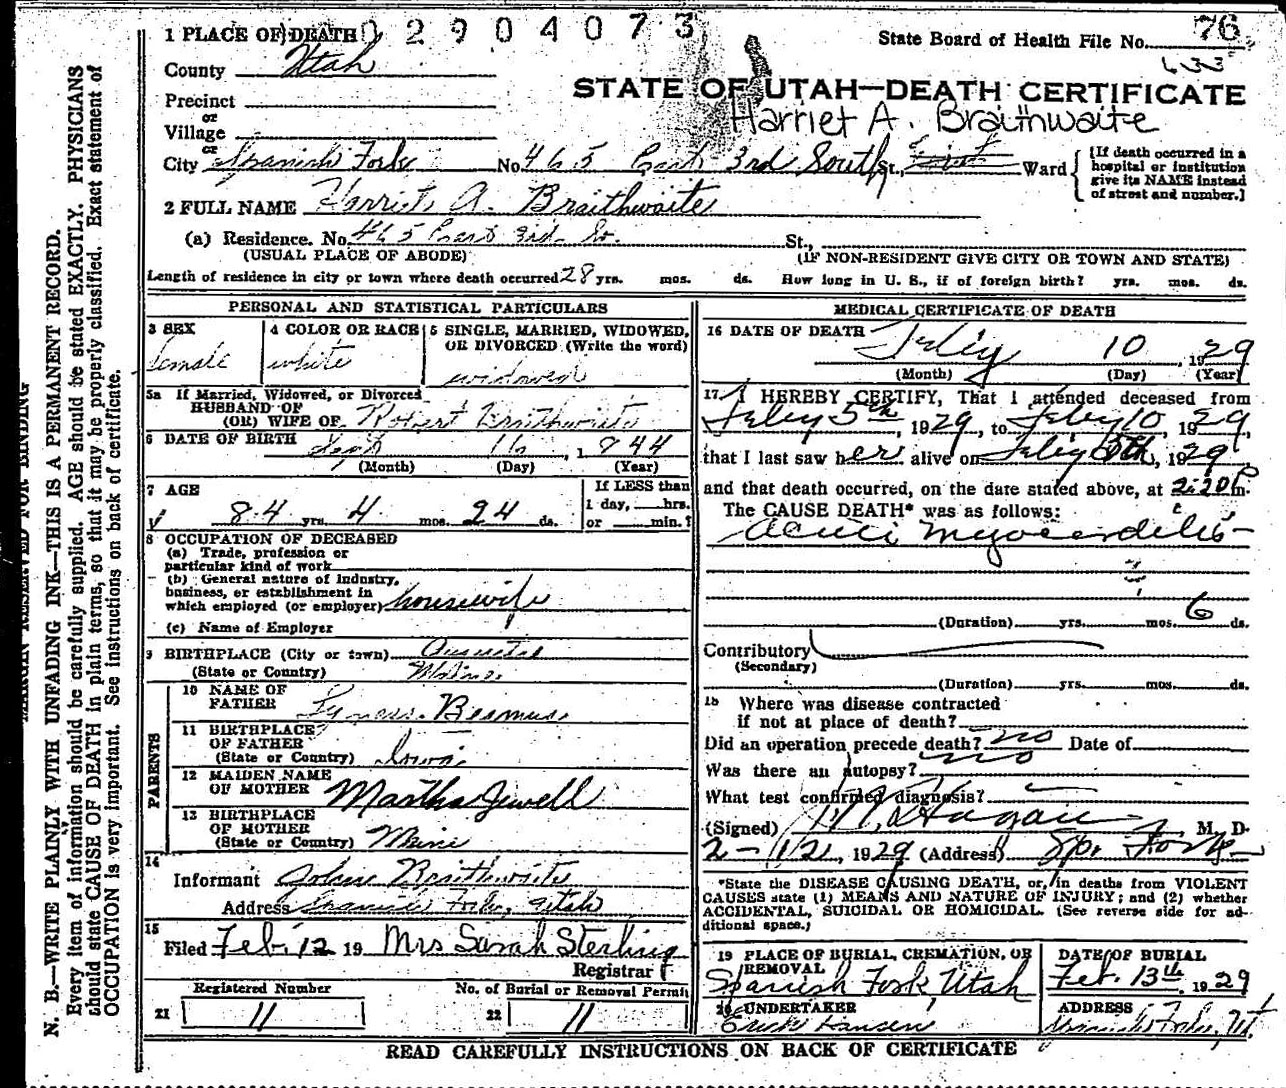 1 PLACE OF DEATH 0 2 9 0 4 0 7 3
State Board of Health File No. 76
County Utah
STATE OF UTAH—DEATH CERTIFICATE
Precinct
or
Village
Harriet A. Braithwaite
or
City Spanish Fork No. 465 East 3rd South St., Ward
[If death occurred in a hospital or institution give its NAME instead of street and number.]
2 FULL NAME Harriet A. Braithwaite
(a) Residence. No. 465 East 3rd So. St.,
(USUAL PLACE OF ABODE) (IF NON-RESIDENT GIVE CITY OR TOWN AND STATE)
Length of residence in city or town where death occurred 28 yrs. mos. ds. How long in U. S., if of foreign birth? yrs. mos. ds.
PERSONAL AND STATISTICAL PARTICULARS
3 SEX 4 COLOR OR RACE 5 SINGLE, MARRIED, WIDOWED,
OR DIVORCED (Write the word)
female white widowed
5a If Married, Widowed, or Divorced
HUSBAND OF
(OR) WIFE OF Robert Braithwaite
6 DATE OF BIRTH Sept 16, 1844
(Month) (Day) (Year)
7 AGE If LESS than
84 yrs. 4 mos. 24 ds. 1 day, hrs.
or min.?
8 OCCUPATION OF DECEASED
(a) Trade, profession or
particular kind of work
(b) General nature of Industry,
business, or establishment in
which employed (or employer) housewife
(c) Name of Employer
9 BIRTHPLACE (City or town) Augusta
(State or Country) Maine
PARENTS
10 NAME OF
FATHER
11 BIRTHPLACE
OF FATHER
(State or Country) Iowa
12 MAIDEN NAME
OF MOTHER Martha Jewell
13 BIRTHPLACE
OF MOTHER
(State or Country) Maine
14
Informant Braithwaite
Address Spanish Fork, Utah
15
Filed Feb. 12 19 Mrs Sarah Sterling
Registrar
Registered Number No. of Burial or Removal Permit
21 11 22 11
MEDICAL CERTIFICATE OF DEATH
16 DATE OF DEATH Feby 10, 1929
(Month) (Day) (Year)
17 I HEREBY CERTIFY, That I attended deceased from
Feby 5th, 1929, to Feby 10, 1929,
that I last saw her alive on Feby, 1929
and that death occurred, on the date stated above, at 2:20 P m.
The CAUSE DEATH* was as follows:
Acute myocarditis
(Duration) yrs. mos. 6 ds.
Contributory
(Secondary)
(Duration) yrs. mos. ds.
18 Where was disease contracted
if not at place of death?
Did an operation precede death? no Date of
Was there an autopsy? no
What test confirmed diagnosis?
(Signed) Hagan M. D.
2-12, 1929 (Address) Sp. Fork
*State the DISEASE CAUSING DEATH, or, in deaths from VIOLENT
CAUSES state (1) MEANS AND NATURE OF INJURY; and (2) whether
ACCIDENTAL, SUICIDAL OR HOMICIDAL. (See reverse side for ad-
ditional space.)
19 PLACE OF BURIAL, CREMATION, OR DATE OF BURIAL
REMOVAL
Spanish Fork, Utah Feb. 13th 1929
20 UNDERTAKER ADDRESS
Hansen Spanish Fork, Ut.
READ CAREFULLY INSTRUCTIONS ON BACK OF CERTIFICATE
MARGIN RESERVED FOR BINDING
N. B.—WRITE PLAINLY WITH UNFADING INK—THIS IS A PERMANENT RECORD.
Every item of information should be carefully supplied. AGE should be stated EXACTLY. PHYSICIANS
should state CAUSE OF DEATH in plain terms, so that it may be properly classified. Exact statement of
OCCUPATION is very important. See instructions on back of certificate.